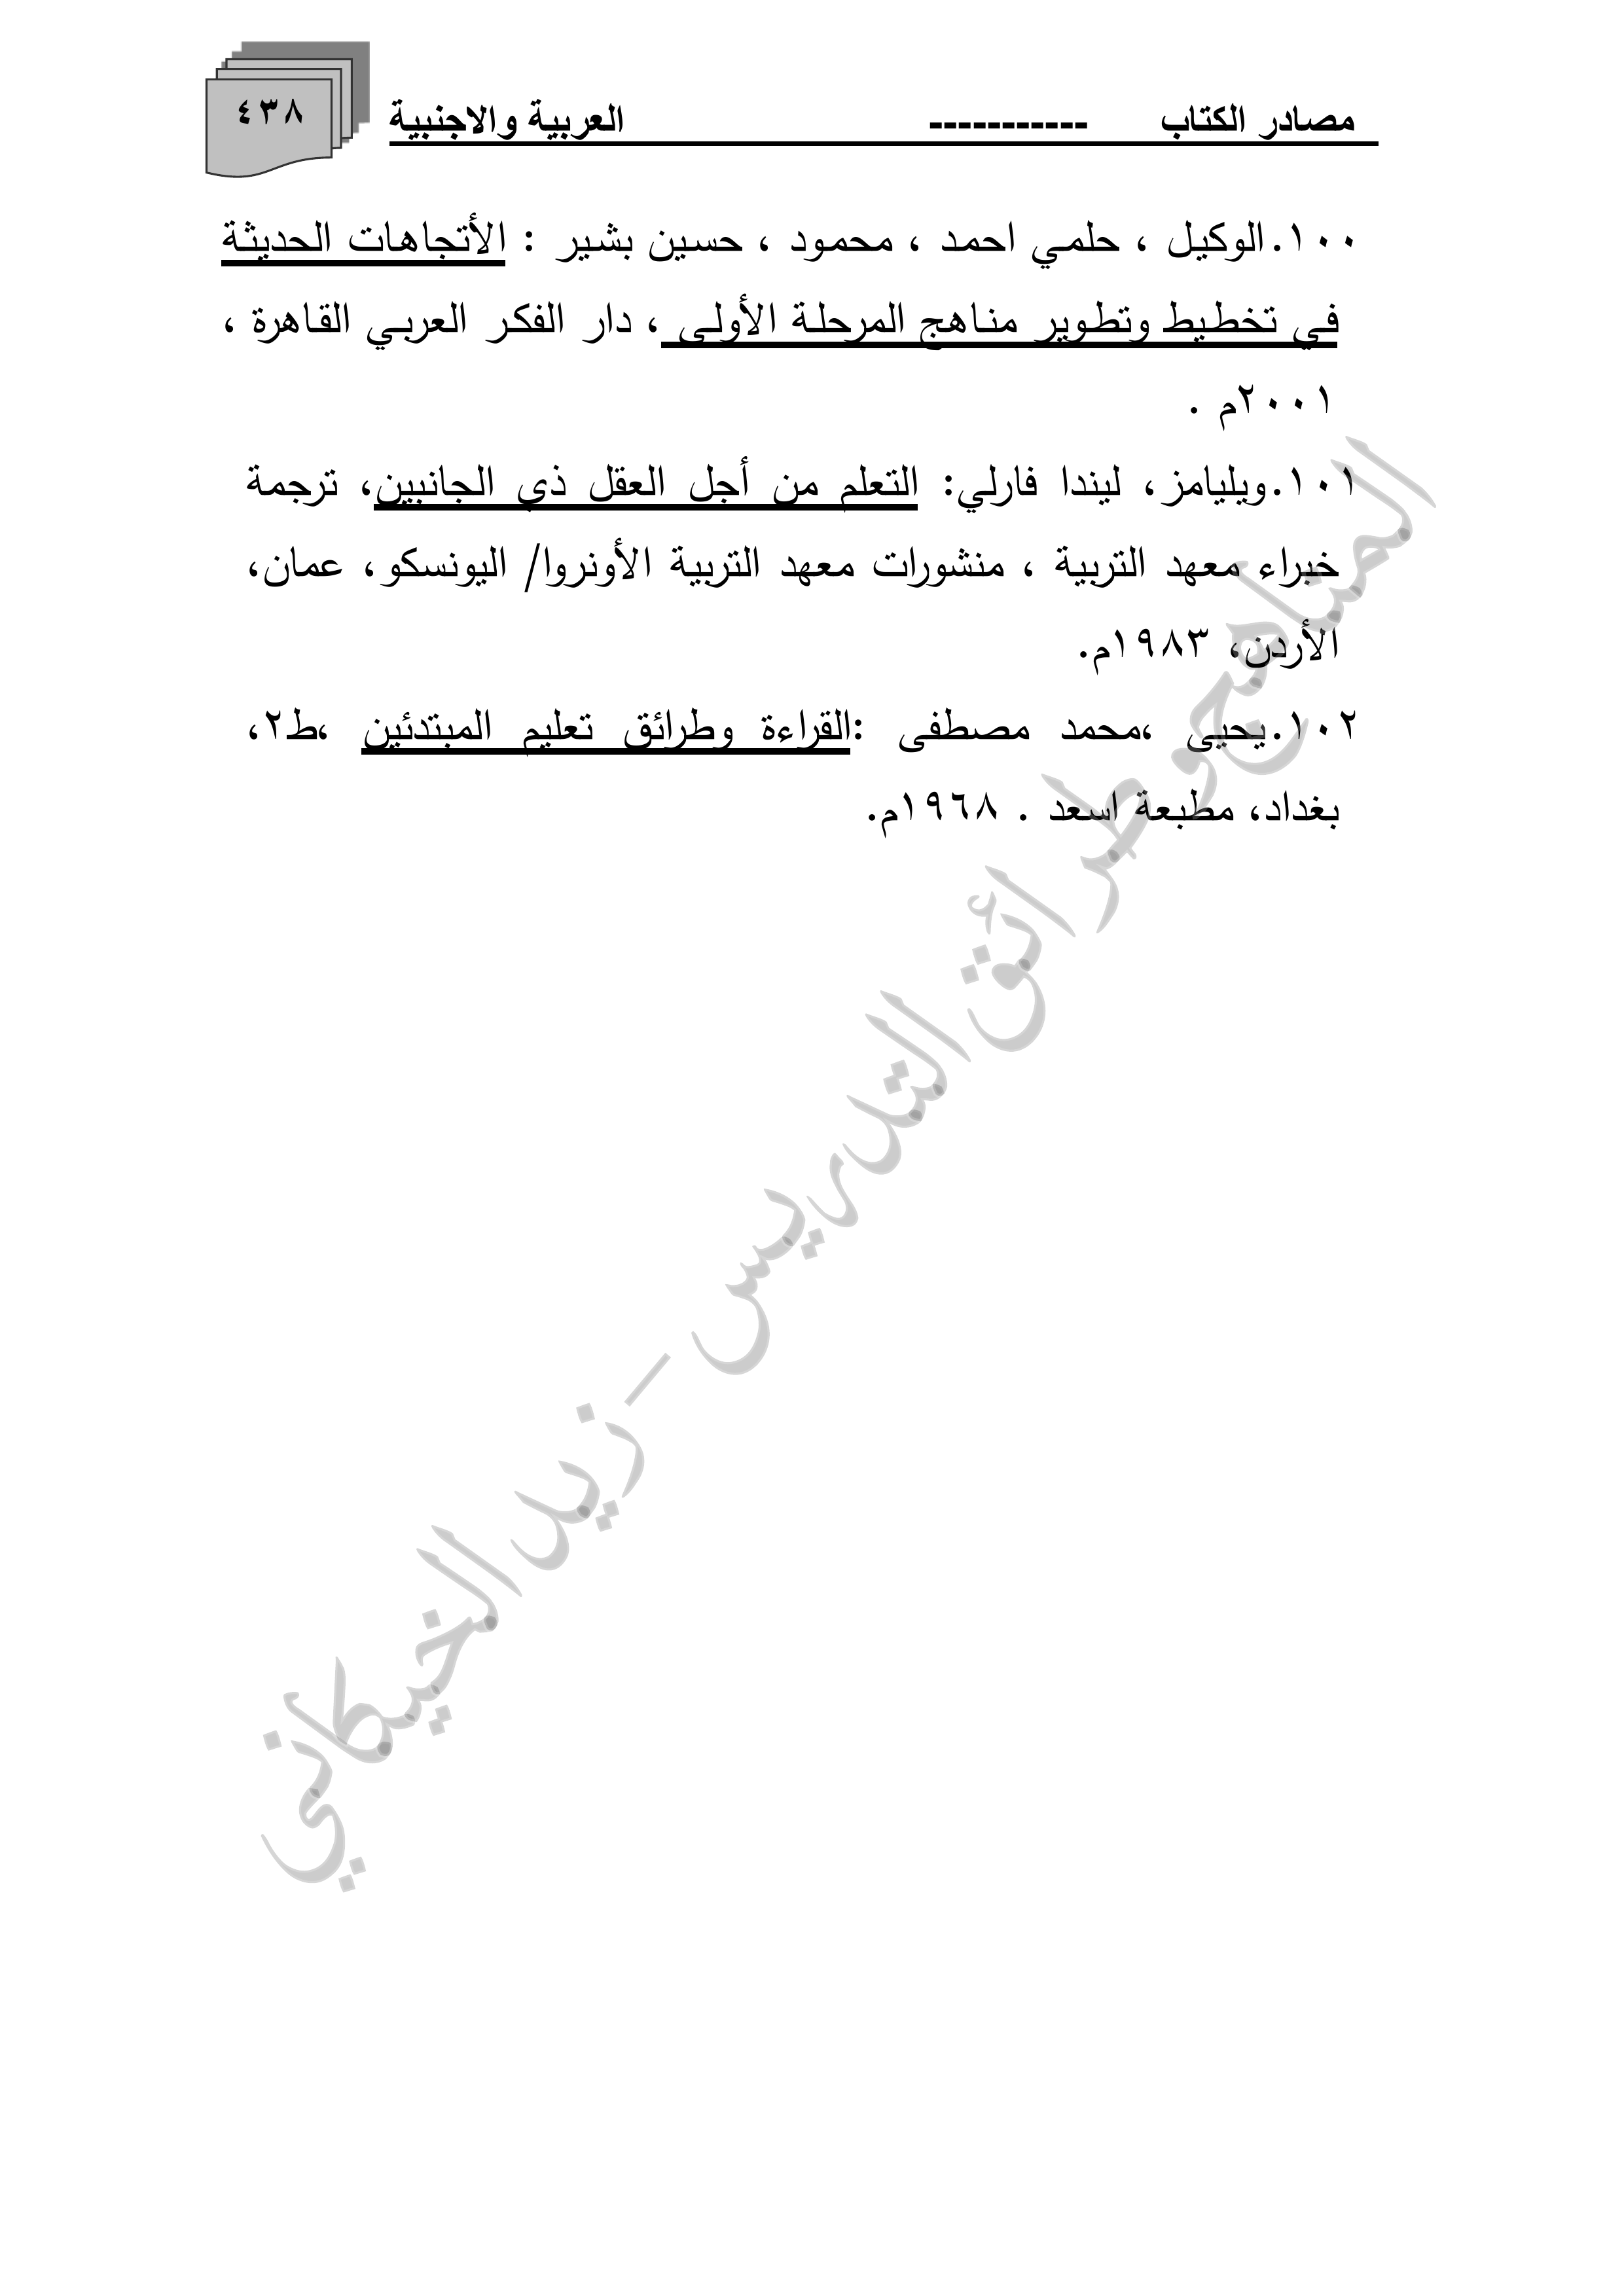 مصادر الكتاب ----------- العربية والاجنبية
٤٣٨
١٠٠.الوكيل ، حلمي احمد ، محمود ، حسين بشير : الأتجاهات الحديثة
في تخطيط وتطوير مناهج المرحلة الأولى ، دار الفكر العربي القاهرة ،
٢٠٠١م .
١٠١.ويليامز، ليندا فارلي: التعلم من أجل العقل ذي الجانبين، ترجمة
خبراء معهد التربية ، منشورات معهد التربية الأونروا/ اليونسكو، عمان،
الأردن، ١٩٨٣م.
١٠٢.يحيى ،محمد مصطفى :القراءة وطرائق تعليم المبتدئين ،ط٢،
بغداد، مطبعة اسعد . ١٩٦٨م.
المناهج وطرائق التدريس - زيد الخيكاني